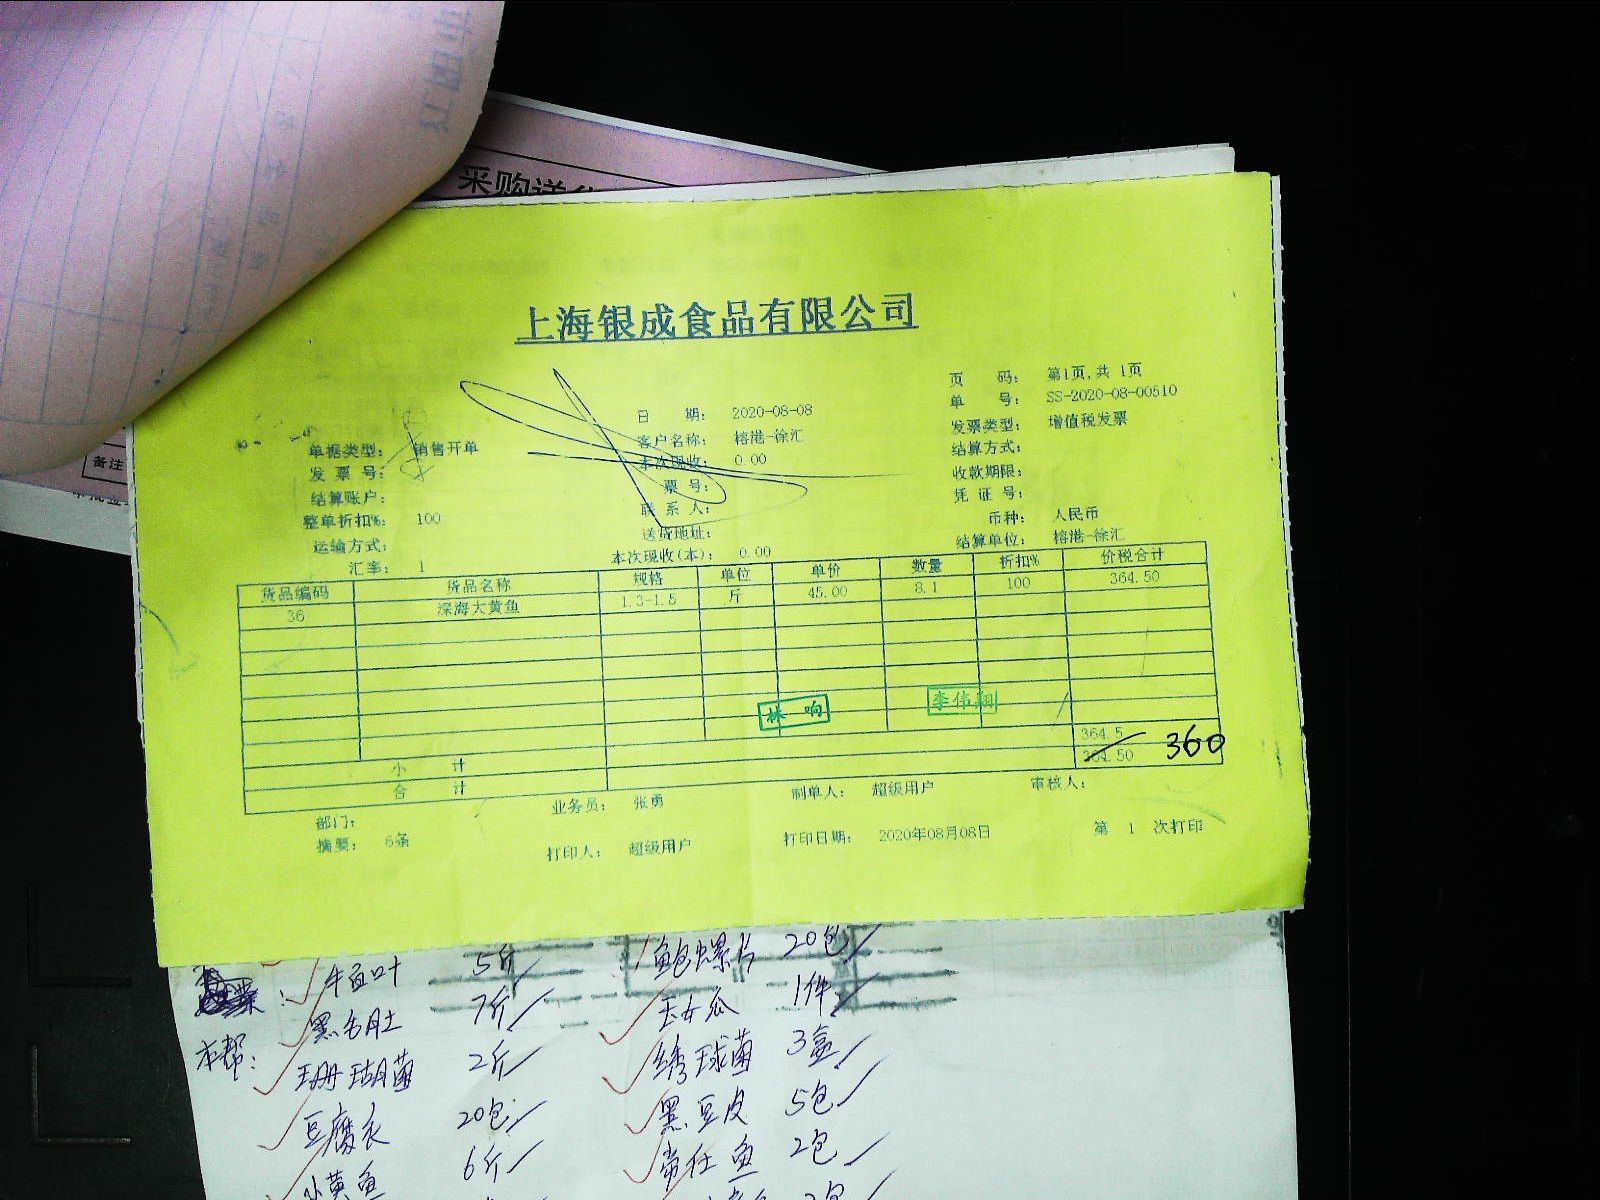 采购送
备注
上海银成食品有限公司
页 码： 第1页,共 1页
日 期： 2020-08-08 单 号： SS-2020-08-00510
单据类型： 销售开单 客户名称： 榕港-徐汇 发票类型： 增值税发票
发 票 号： 本次现收： 0.00 结算方式：
结算账户： 票号： 收款期限：
整单折扣%： 100 联 系 人： 凭 证 号：
运输方式： 送货地址： 币种： 人民币
汇率： 1 本次现收(本)： 0.00 结算单位： 榕港-徐汇
货品编码 货品名称 规格 单位 单价 数量 折扣% 价税合计
36 深海大黄鱼 1.3-1.5 斤 45.00 8.1 100 364.50
林 响 李伟翔
小 计 364.5
合 计 364.50 360
部门： 业务员： 张勇 制单人： 超级用户 审核人：
摘要： 6条 打印人： 超级用户 打印日期： 2020年08月08日 第 1 次打印
5斤 鲍螺片 20包
黑毛肚 7斤 玉女瓜 1件
本帮： 珊瑚菌 2斤 绣球菌 3盒
豆腐衣 20包 黑豆皮 5包
小黄鱼 6斤 鱼 2包